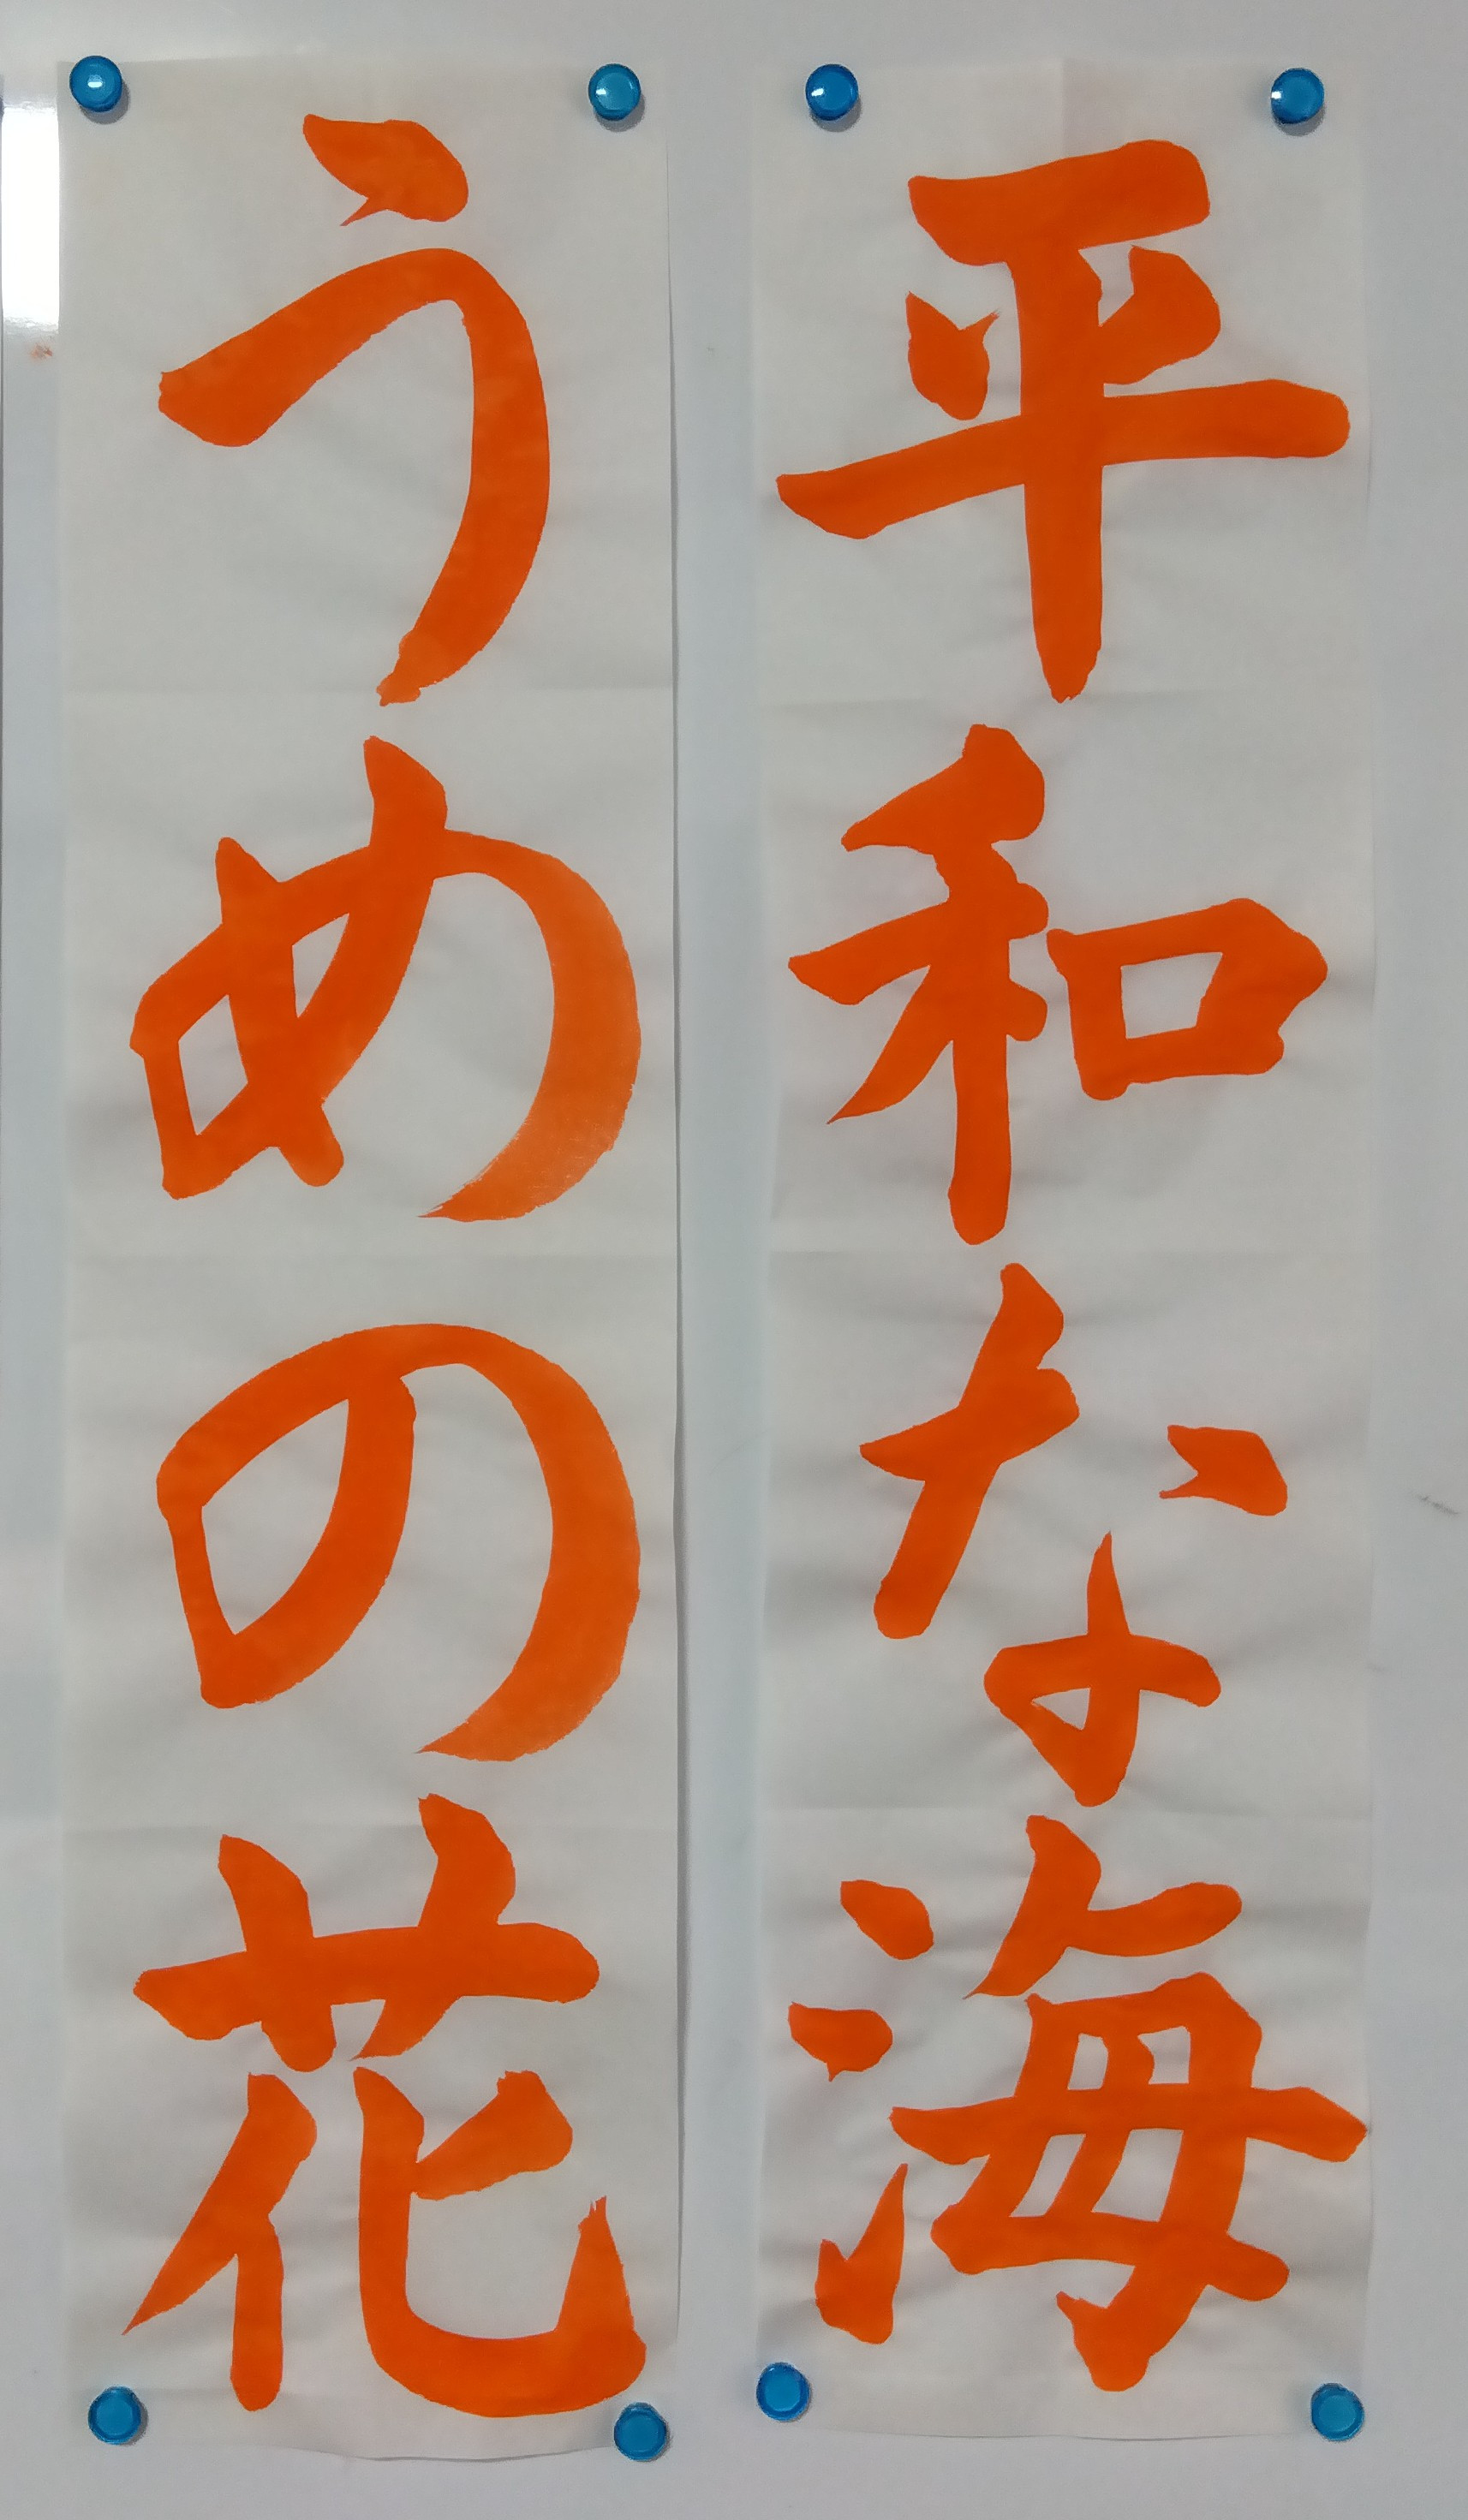 平和な海
うめの花